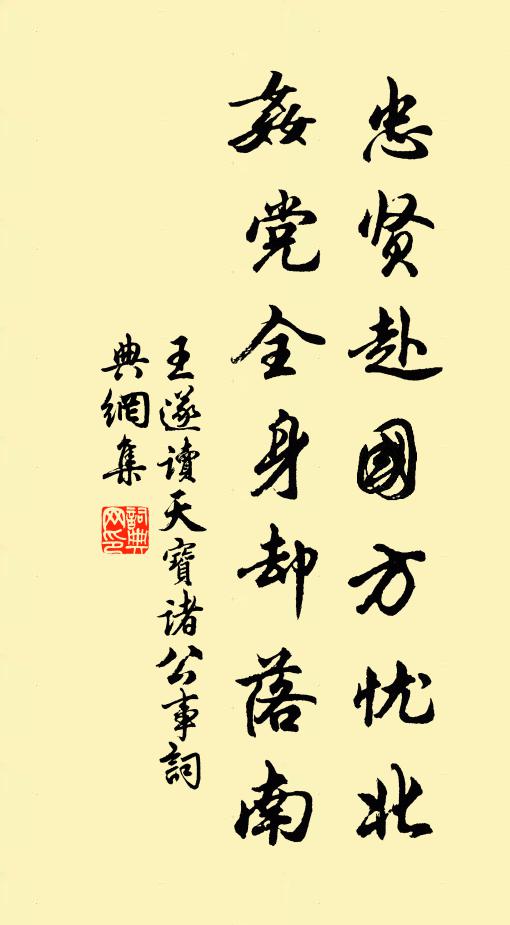 忠贤赴國方忧北
姦党全身却落南
王遂读天寶诸公事詞
典網集
詞典網印